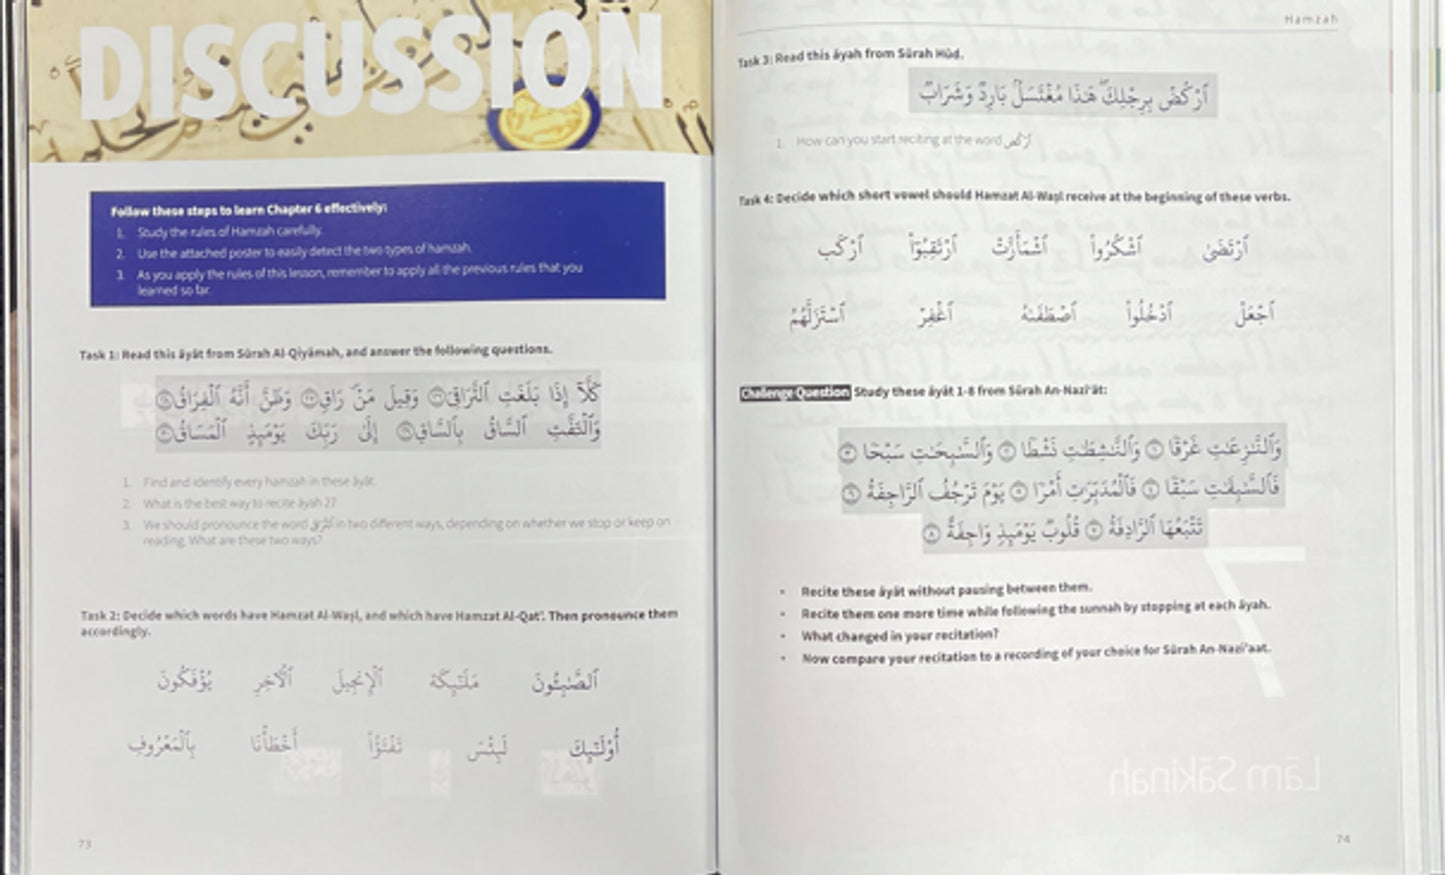 DISCUSSION
Follow these steps to learn Chapter 6 effectively:
1. Study the rules of Hamzah carefully.
2. Use the attached poster to easily detect the two types of hamzah.
3. As you apply the rules of this lesson, remember to apply all the previous rules that you
learned so far.
Task 1: Read this āyāt from Sūrah Al-Qiyāmah, and answer the following questions.
كَلَّآ إِذَا بَلَغَتِ ٱلتَّرَاقِيَ ٢٦ وَقِيلَ مَنْۜ رَاقٍ ٢٧ وَظَنَّ أَنَّهُ ٱلْفِرَاقُ ٢٨
وَٱلْتَفَّتِ ٱلسَّاقُ بِٱلسَّاقِ ٢٩ إِلَىٰ رَبِّكَ يَوْمَئِذٍ ٱلْمَسَاقُ ٣٠
1. Find and identify every hamzah in these āyāt.
2. What is the best way to recite āyah 27?
3. We should pronounce the word in two different ways, depending on whether we stop or keep on
reading. What are these two ways?
Task 2: Decide which words have Hamzat Al-Waṣl, and which have Hamzat Al-Qat'. Then pronounce them
accordingly.
ٱلصَّٰبِـُٔونَ مَلَٰٓئِكَة ٱلْإِنجِيلَ ٱلْآخِرِ يُؤْفَكُونَ
أُوْلَٰٓئِكَ لَبِئْسَ تَفْتَؤُاْ أَخْطَأْنَا بِٱلْمَعْرُوفِ
73
Hamzah
Task 3: Read this āyah from Sūrah Hūd.
ٱرْكُضْ بِرِجْلِكَۖ هَٰذَا مُغْتَسَلٌۢ بَارِدٌ وَشَرَابٌ
1. How can you start reciting at the word ٱرْكُضْ
Task 4: Decide which short vowel should Hamzat Al-Waṣl receive at the beginning of these verbs.
ٱرْتَضَىٰ ٱشْكُرُواْ ٱشْمَأَزَّتْ ٱرْتَقِبُوٓاْ ٱرْكَب
ٱجْعَلْ ٱدْخُلُواْ ٱصْطَفَىٰهُ ٱغْفِرْ ٱسْتَزَلَّهُمُ
Challenge Question Study these āyāt 1-8 from Sūrah An-Nazi'āt:
وَٱلنَّٰزِعَٰتِ غَرْقًا ١ وَٱلنَّٰشِطَٰتِ نَشْطًا ٢ وَٱلسَّٰبِحَٰتِ سَبْحًا ٣
فَٱلسَّٰبِقَٰتِ سَبْقًا ٤ فَٱلْمُدَبِّرَٰتِ أَمْرًا ٥ يَوْمَ تَرْجُفُ ٱلرَّاجِفَةُ ٦
تَتْبَعُهَا ٱلرَّادِفَةُ ٧ قُلُوبٌ يَوْمَئِذٍ وَاجِفَةٌ ٨
• Recite these āyāt without pausing between them.
• Recite them one more time while following the sunnah by stopping at each āyah.
• What changed in your recitation?
• Now compare your recitation to a recording of your choice for Sūrah An-Nazi'aat.
Lām Sākinah
74